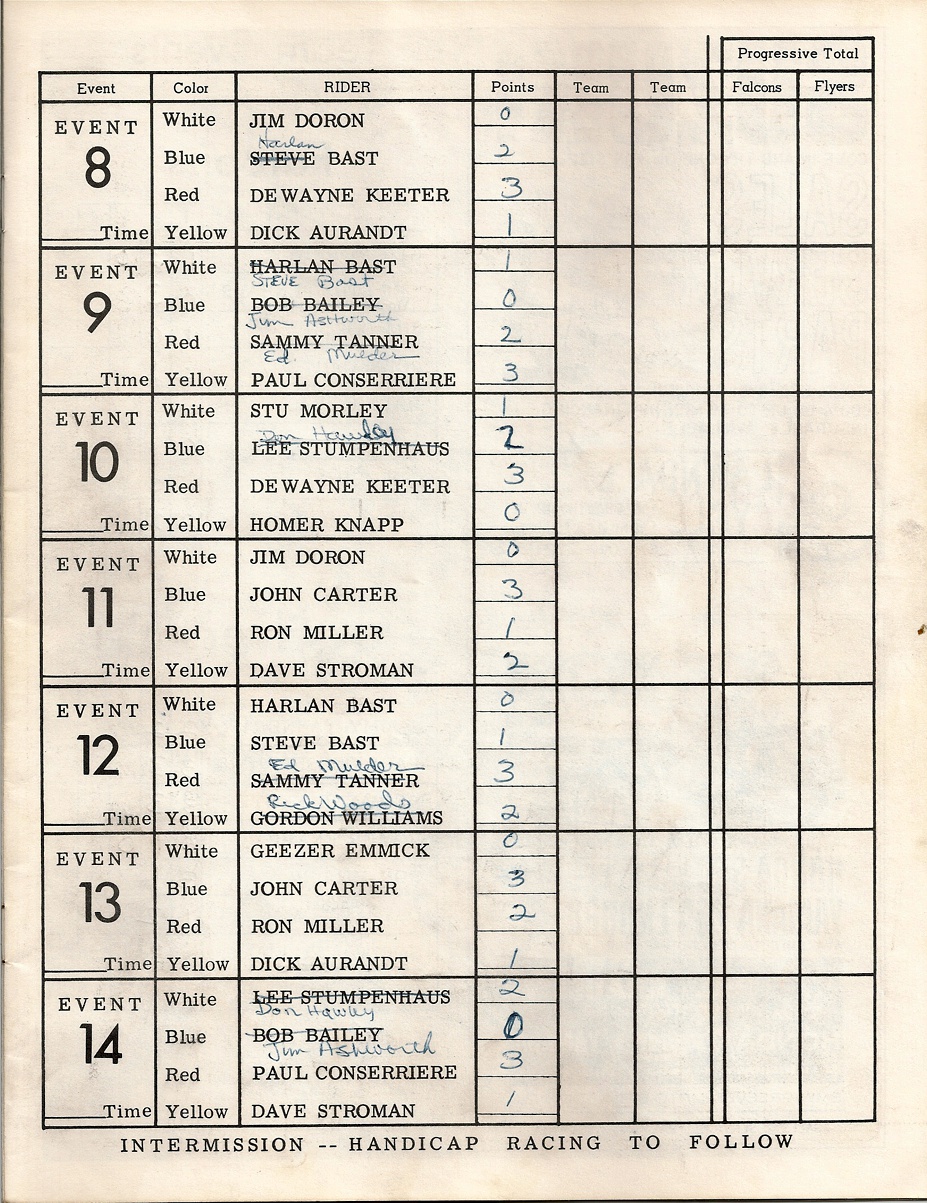 Progressive Total
Event Color RIDER Points Team Team Falcons Flyers
EVENT 8
White JIM DORON 0
Harlan
Blue STEVE BAST 2
Red DEWAYNE KEETER 3
____Time Yellow DICK AURANDT 1
EVENT 9
White HARLAN BAST 1
STEVE Bast
Blue BOB BAILEY 0
Jim Ashworth
Red SAMMY TANNER 2
Ed. Mulder
____Time Yellow PAUL CONSERRIERE 3
EVENT 10
White STU MORLEY 1
Don Hawley
Blue LEE STUMPENHAUS 2
Red DEWAYNE KEETER 3
____Time Yellow HOMER KNAPP 0
EVENT 11
White JIM DORON 0
Blue JOHN CARTER 3
Red RON MILLER 1
____Time Yellow DAVE STROMAN 2
EVENT 12
White HARLAN BAST 0
Blue STEVE BAST 1
Ed Mulder
Red SAMMY TANNER 3
Rick Woods
____Time Yellow GORDON WILLIAMS 2
EVENT 13
White GEEZER EMMICK 0
Blue JOHN CARTER 3
Red RON MILLER 2
____Time Yellow DICK AURANDT 1
EVENT 14
White LEE STUMPENHAUS 2
Don Hawley
Blue BOB BAILEY 0
Jim Ashworth
Red PAUL CONSERRIERE 3
____Time Yellow DAVE STROMAN 1
INTERMISSION -- HANDICAP RACING TO FOLLOW